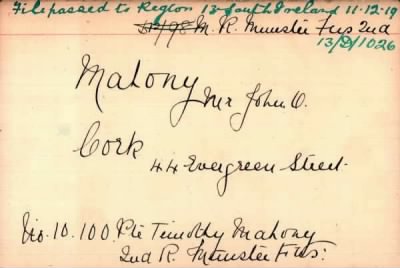 File passed to Region 13 South Ireland 11.12.19
M. R. Munster Fus 2nd
13/D/1026
Mahony
Mr John O.
Cork
44 Evergreen Street.
No. 10.100. Pte Timothy Mahony
2nd R. Munster Fus: